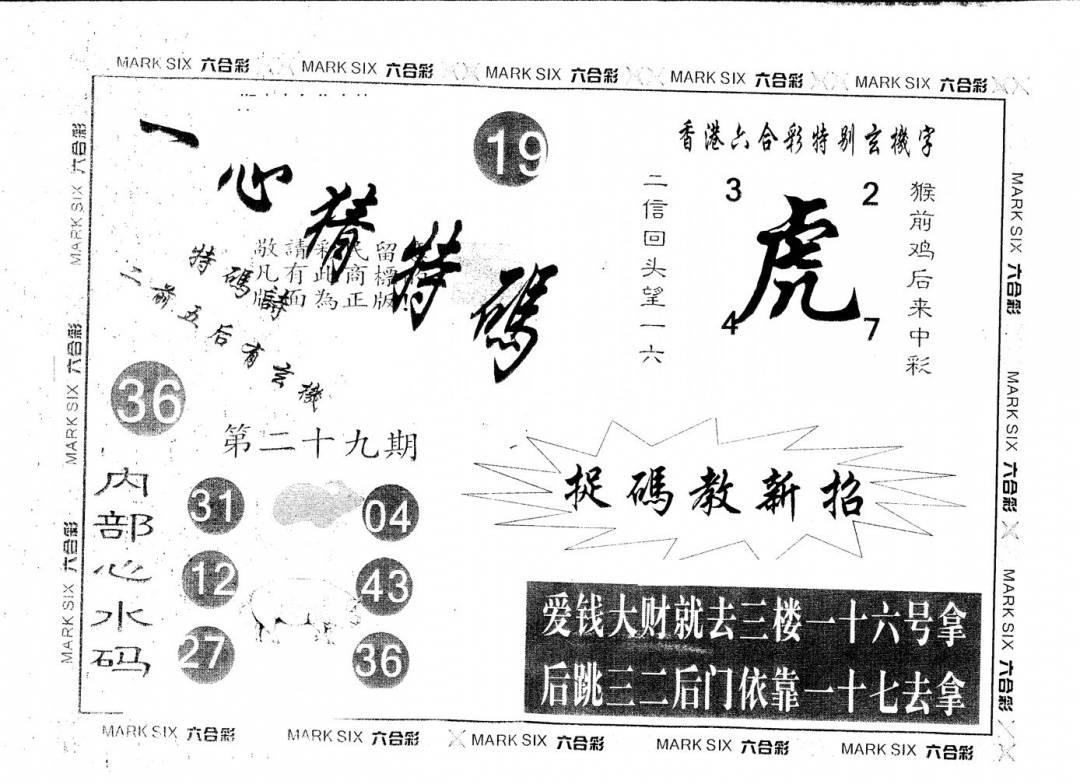 MARK SIX 六合彩 MARK SIX 六合彩 MARK SIX 六合彩 MARK SIX 六合彩 MARK SIX 六合彩
一心猜特码
19
敬請彩民留
凡有此商標
版面為正版!
特碼詩
二前五后有玄機
36
第二十九期
香港六合彩特别玄機字
二信回头望一六
3
2
虎
4
7
猴前鸡后来中彩
捉碼教新招
内部心水码
31
04
12
43
27
36
爱钱大财就去三楼一十六号拿
后跳三二后门依靠一十七去拿
MARK SIX 六合彩 MARK SIX 六合彩 MARK SIX 六合彩
MARK SIX 六合彩 MARK SIX 六合彩 MARK SIX 六合彩
MARK SIX 六合彩 MARK SIX 六合彩 MARK SIX 六合彩 MARK SIX 六合彩 MARK SIX 六合彩